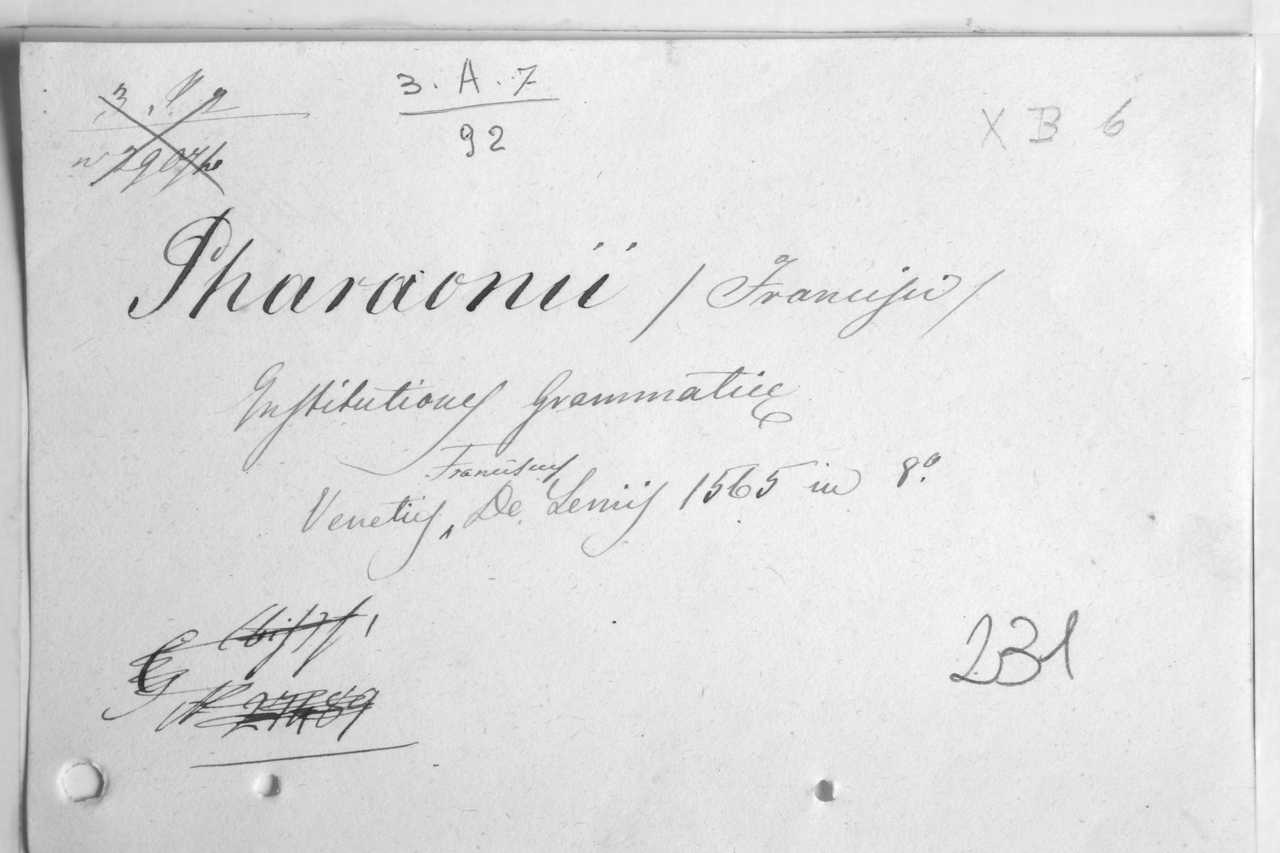 3. A. 7
92
X B 6
Pharaonii / Francisci /
Institutiones Grammaticæ
Franciscus
Venetiis, De Leniis 1565 in 8º
231